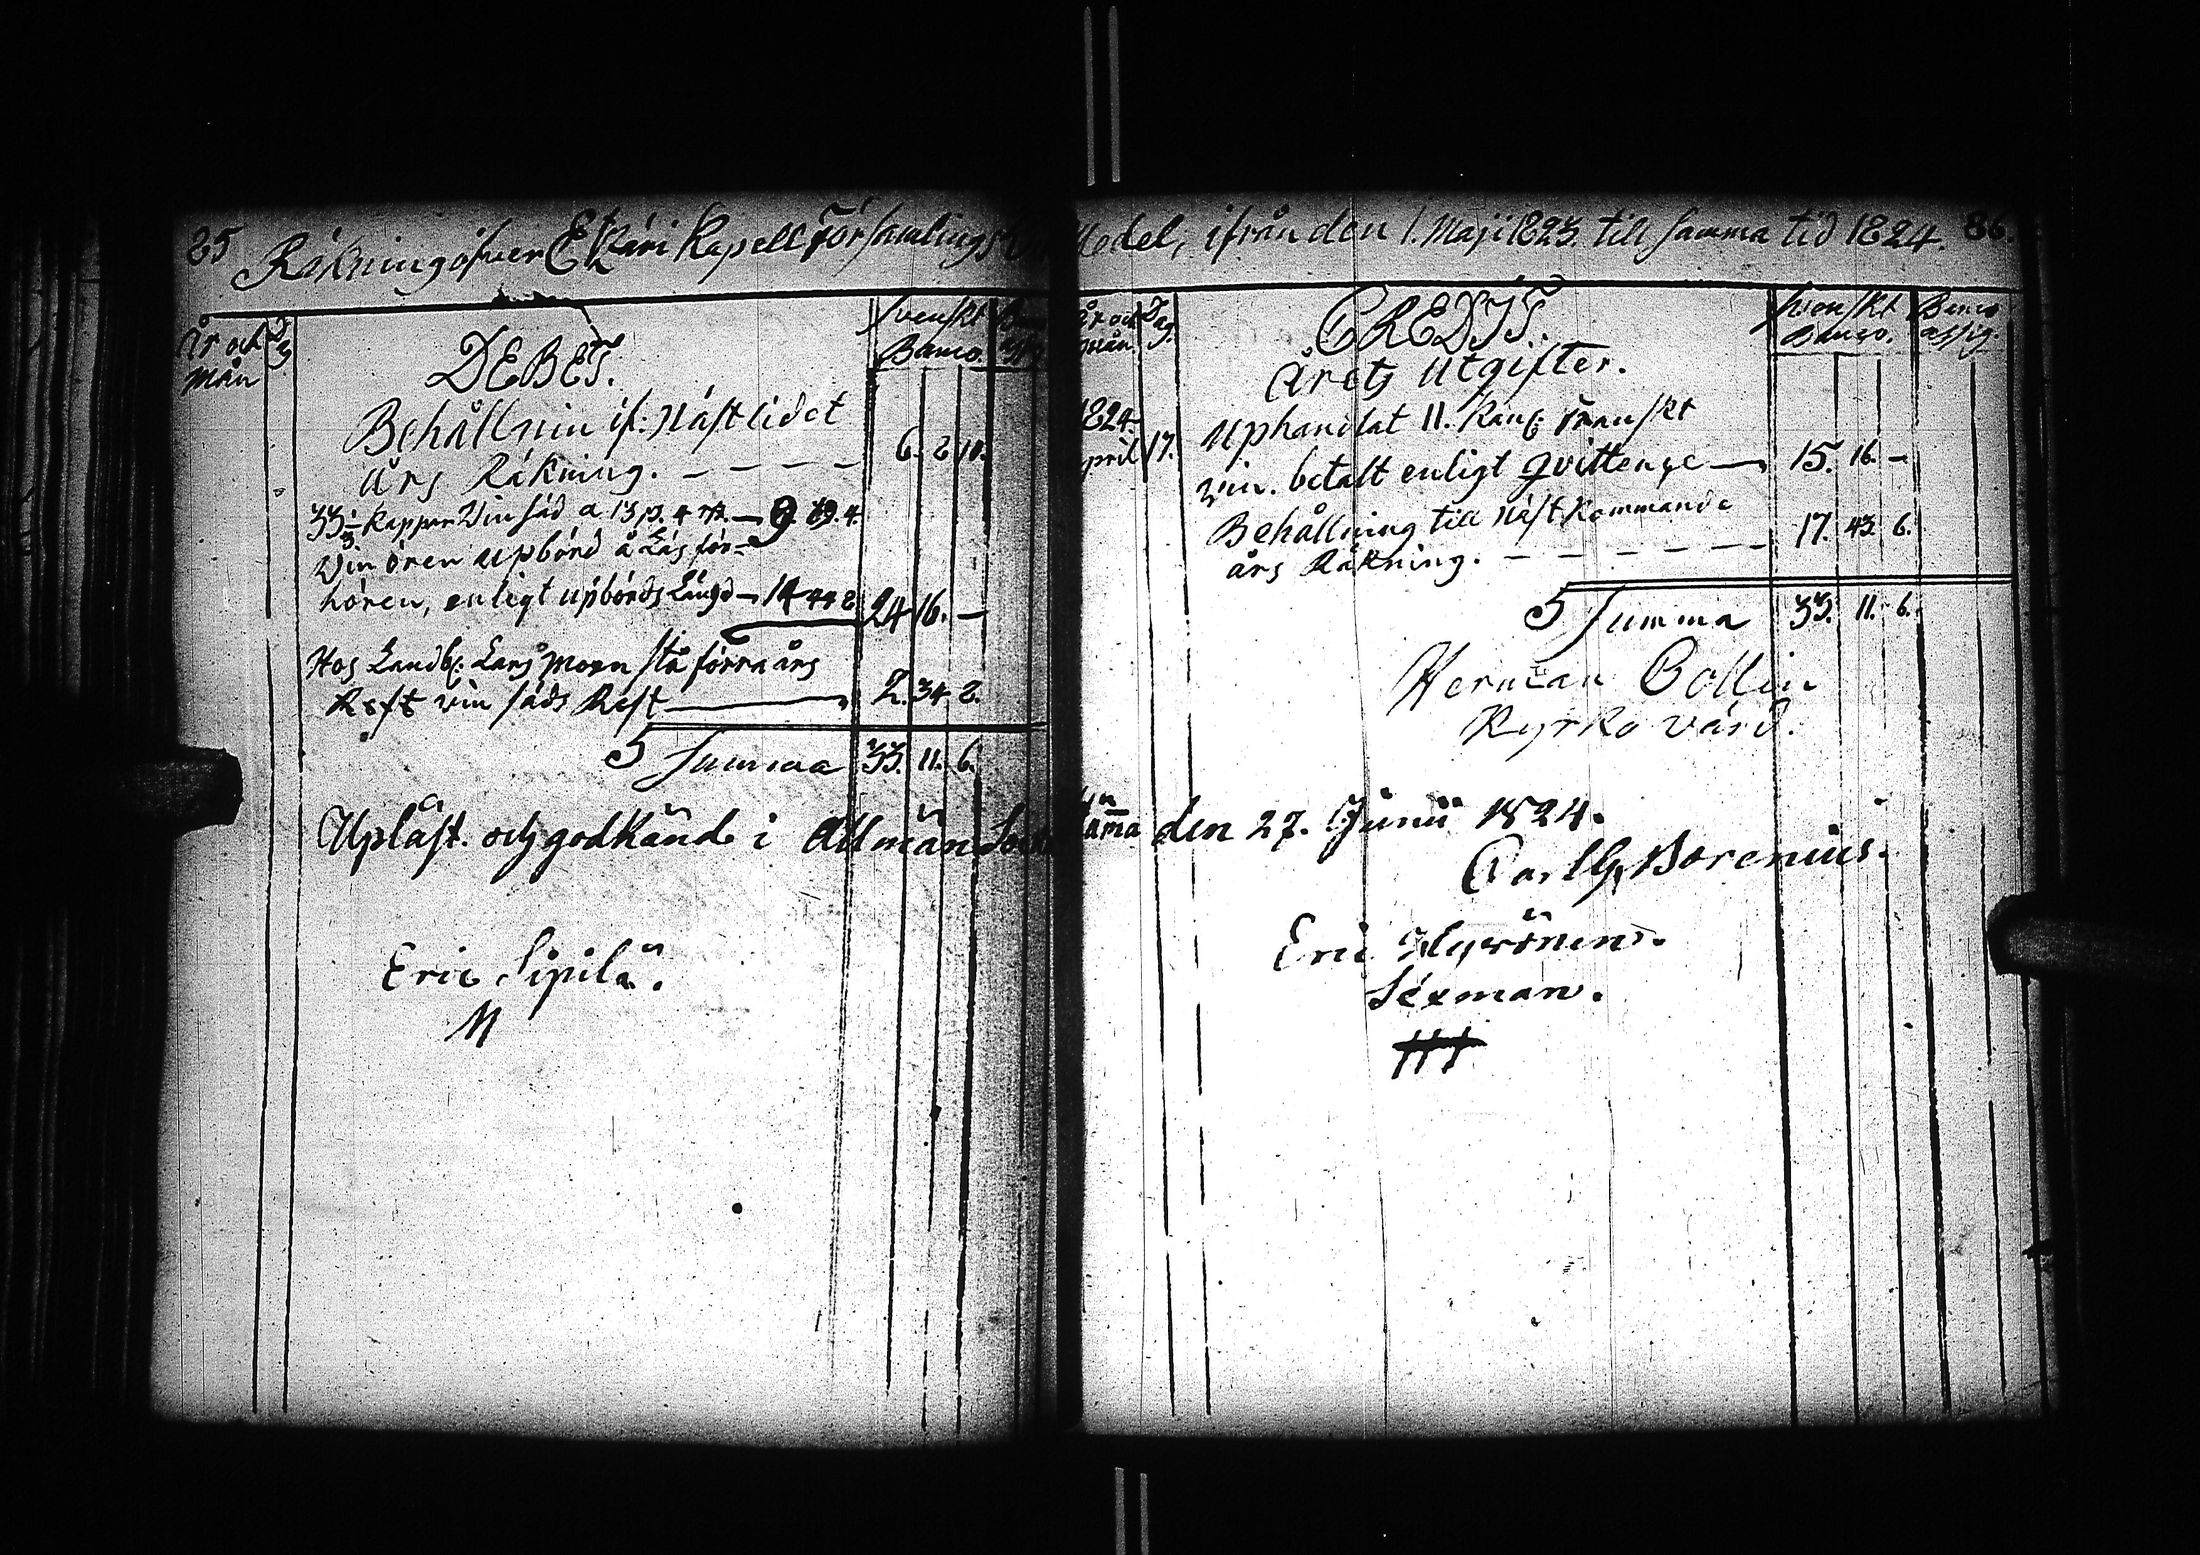 85
Räkning öfver Etzäri Kapell Församlings Medel, ifrån den 1. Maji 1823. till samma tid 1824. 86.
År och mån
Dag
DEBET.
Svenskt Banco.
Behållnin if: Nästlidet
Års Räkning. — — — — 6. 2 10.
33 1/3 Kappar Vin säd a 13 ß. 4 rst. — 9. 19. 4.
Vin ören upbörd å Läs för=
hören, enligt upbörds Längd — 14 44 8 24 16. —
Hos Landb. Lars Moen stå förra års
Rest vin säds Rest — 2. 34 8.
Summa 33. 11. 6.
År och mån
Dag.
CREDIT.
Svenskt Banco.
Banco assig.
Årets Utgifter.
1824.
April 17. Uphandlat 11. Kan: Franskt
Vin. betalt enligt qvittence — 15. 16. —
Behållning till näst Kommande
års Räkning. — — — — — 17. 43. 6.
Summa 33. 11. 6.
Herman Collin
Kyrko värd.
Upläst och godkänd i Allmän den 27. Junii 1824.
Carl G. Borenius.
Eric Sipilä.
M
Eric
Sexman.